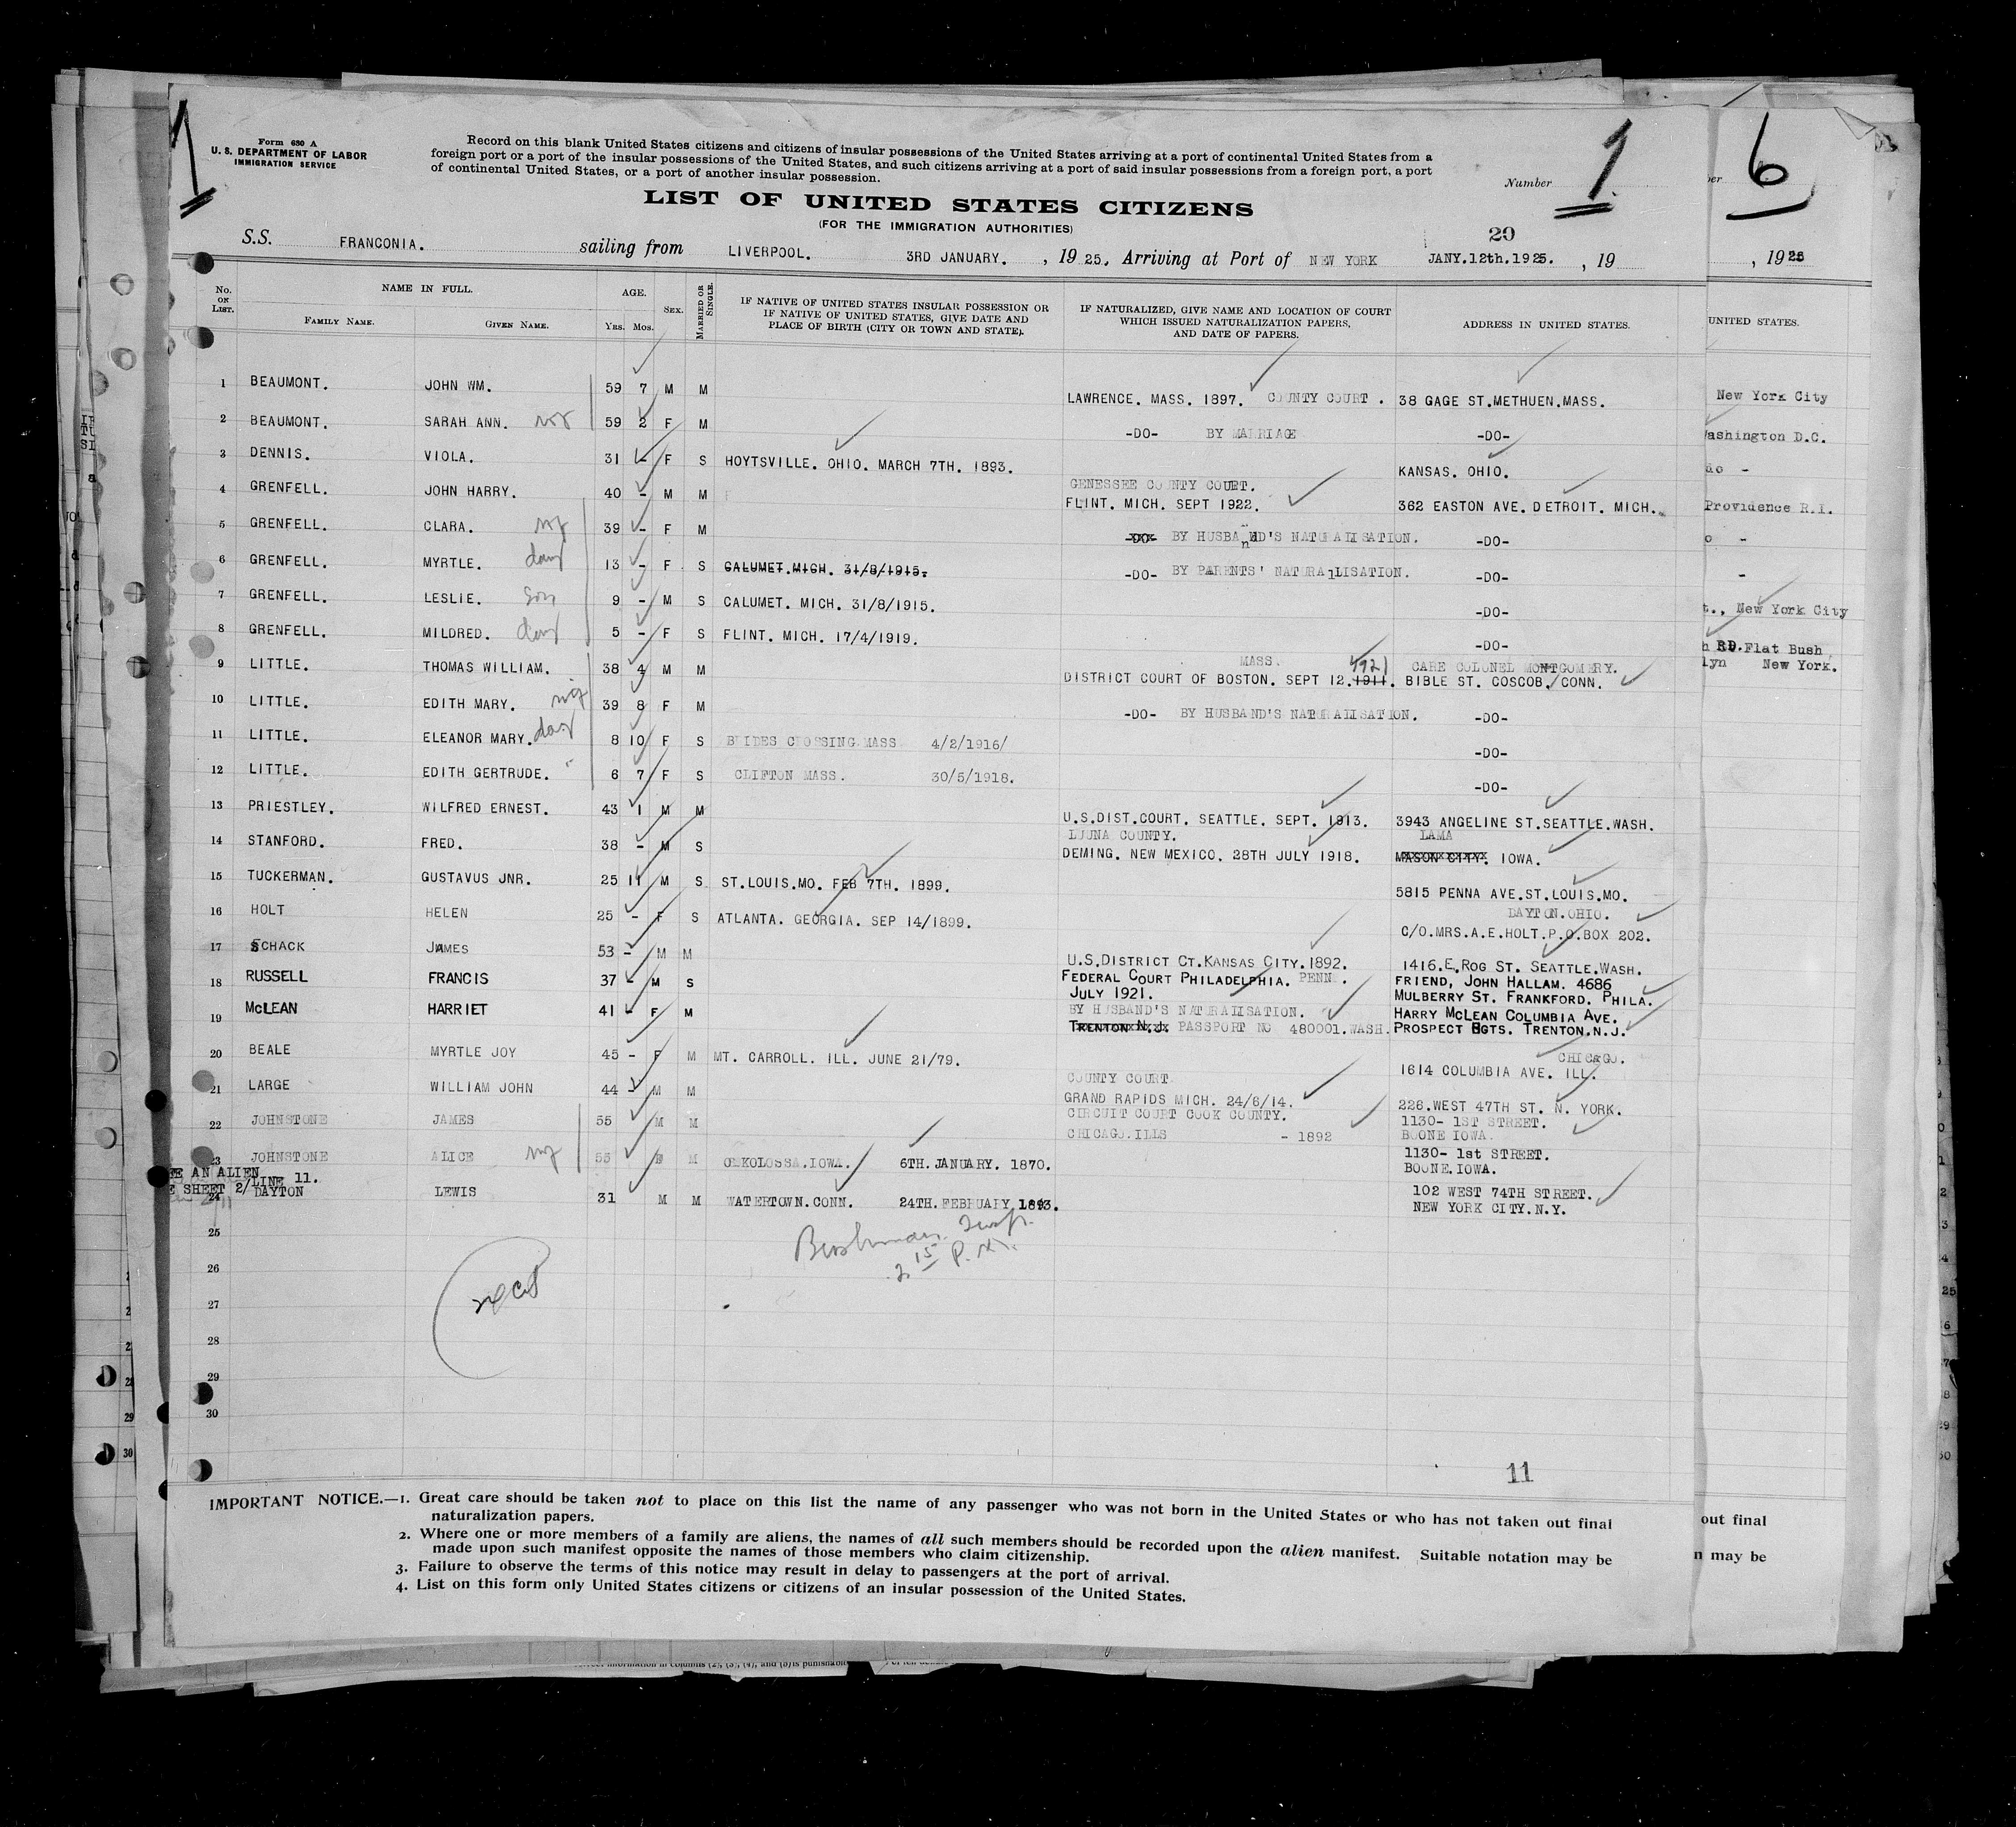 1
Form 630 A
U. S. DEPARTMENT OF LABOR
IMMIGRATION SERVICE
Record on this blank United States citizens and citizens of insular possessions of the United States arriving at a port of continental United States from a
foreign port or a port of the insular possessions of the United States, and such citizens arriving at a port of said insular possessions from a foreign port, a port
of continental United States, or a port of another insular possession.
Number 1
LIST OF UNITED STATES CITIZENS
(FOR THE IMMIGRATION AUTHORITIES)
20
S.S. FRANCONIA. sailing from LIVERPOOL. 3RD JANUARY. , 19 25. Arriving at Port of NEW YORK JANY.12th.1925. , 19
No. on List. NAME IN FULL. Family Name. Given Name. AGE. Yrs. Mos. Sex. Married or Single. IF NATIVE OF UNITED STATES INSULAR POSSESSION OR IF NATIVE OF UNITED STATES, GIVE DATE AND PLACE OF BIRTH (CITY OR TOWN AND STATE). IF NATURALIZED, GIVE NAME AND LOCATION OF COURT WHICH ISSUED NATURALIZATION PAPERS, AND DATE OF PAPERS. ADDRESS IN UNITED STATES.
1 BEAUMONT. JOHN WM. 59 7 M M LAWRENCE. MASS. 1897. COUNTY COURT. 38 GAGE ST.METHUEN.MASS.
2 BEAUMONT. SARAH ANN. 59 2 F M -DO- BY MARRIAGE -DO-
3 DENNIS. VIOLA. 31 - F S HOYTSVILLE. OHIO. MARCH 7TH. 1893. KANSAS. OHIO.
4 GRENFELL. JOHN HARRY. 40 - M M GENESSEE COUNTY COURT.
FLINT. MICH. SEPT 1922. 362 EASTON AVE. DETROIT. MICH.
5 GRENFELL. CLARA. 39 - F M -DO- BY HUSBAND'S NATURALISATION. -DO-
6 GRENFELL. MYRTLE. dau 13 - F S CALUMET.MICH. 31/8/1915. -DO- BY PARENTS' NATURALISATION. -DO-
7 GRENFELL. LESLIE. son 9 - M S CALUMET. MICH. 31/8/1915. -DO-
8 GRENFELL. MILDRED. dau 5 - F S FLINT. MICH. 17/4/1919. -DO-
9 LITTLE. THOMAS WILLIAM. 38 4 M M MASS. 1921
DISTRICT COURT OF BOSTON. SEPT 12.1911. CARE COLONEL MONTGOMERY.
BIBLE ST. COSCOB. CONN.
10 LITTLE. EDITH MARY. 39 8 F M -DO- BY HUSBAND'S NATURALISATION. -DO-
11 LITTLE. ELEANOR MARY. dau 8 10 F S BRIDES CROSSING MASS 4/2/1916/ -DO-
12 LITTLE. EDITH GERTRUDE. " 6 7 F S CLIFTON MASS. 30/5/1918. -DO-
13 PRIESTLEY. WILFRED ERNEST. 43 1 M M U.S.DIST.COURT. SEATTLE. SEPT. 1913. 3943 ANGELINE ST.SEATTLE.WASH.
14 STANFORD. FRED. 38 - M S LUUNA COUNTY.
DEMING. NEW MEXICO. 28TH JULY 1918. LAMA
MASON CITY. IOWA.
15 TUCKERMAN. GUSTAVUS JNR. 25 11 M S ST.LOUIS.MO. FEB 7TH. 1899. 5815 PENNA AVE.ST.LOUIS.MO.
16 HOLT HELEN 25 - F S ATLANTA. GEORGIA. SEP 14/1899. DAYTON.OHIO.
C/O.MRS.A.E.HOLT.P.O.BOX 202.
17 SCHACK JAMES 53 - M M U.S.DISTRICT CT.KANSAS CITY.1892. 1416.E.ROG ST. SEATTLE.WASH.
18 RUSSELL FRANCIS 37 - M S FEDERAL COURT PHILADELPHIA. PENN.
JULY 1921. FRIEND, JOHN HALLAM. 4686
MULBERRY ST. FRANKFORD. PHILA.
19 MCLEAN HARRIET 41 - F M BY HUSBAND'S NATURALISATION.
TRENTON N.J. PASSPORT NO 480001.WASH. HARRY MCLEAN COLUMBIA AVE.
PROSPECT HGTS. TRENTON.N.J.
20 BEALE MYRTLE JOY 45 - F M MT. CARROLL. ILL. JUNE 21/79. CHICAGO.
1614 COLUMBIA AVE. ILL.
21 LARGE WILLIAM JOHN 44 - M M COUNTY COURT
GRAND RAPIDS MICH. 24/6/14. 228.WEST 47TH ST. N. YORK.
22 JOHNSTONE JAMES 55 M M CIRCUIT COURT COOK COUNTY.
CHICAGO.ILLS - 1892 1130- 1ST STREET.
BOONE IOWA.
23 JOHNSTONE ALICE 55 F M OSKOLOSSA.IOWA. 6TH.JANUARY. 1870. 1130- 1st STREET.
BOONE.IOWA.
EE AN ALIEN
E SHEET 2/LINE 11.
24 DAYTON LEWIS 31 M M WATERTOWN.CONN. 24TH.FEBRUARY 1893. 102 WEST 74TH STREET.
NEW YORK CITY.N.Y.
25
2 15 P.M.
26
27
28
29
30
11
IMPORTANT NOTICE.—1. Great care should be taken not to place on this list the name of any passenger who was not born in the United States or who has not taken out final
naturalization papers.
2. Where one or more members of a family are aliens, the names of all such members should be recorded upon the alien manifest. Suitable notation may be
made upon such manifest opposite the names of those members who claim citizenship.
3. Failure to observe the terms of this notice may result in delay to passengers at the port of arrival.
4. List on this form only United States citizens or citizens of an insular possession of the United States.
6
, 1925
UNITED STATES.
New York City
Washington D.C.
do -
Providence R.I.
o -
-
t., New York City
h RD.Flat Bush
lyn New York.
out final
n may be